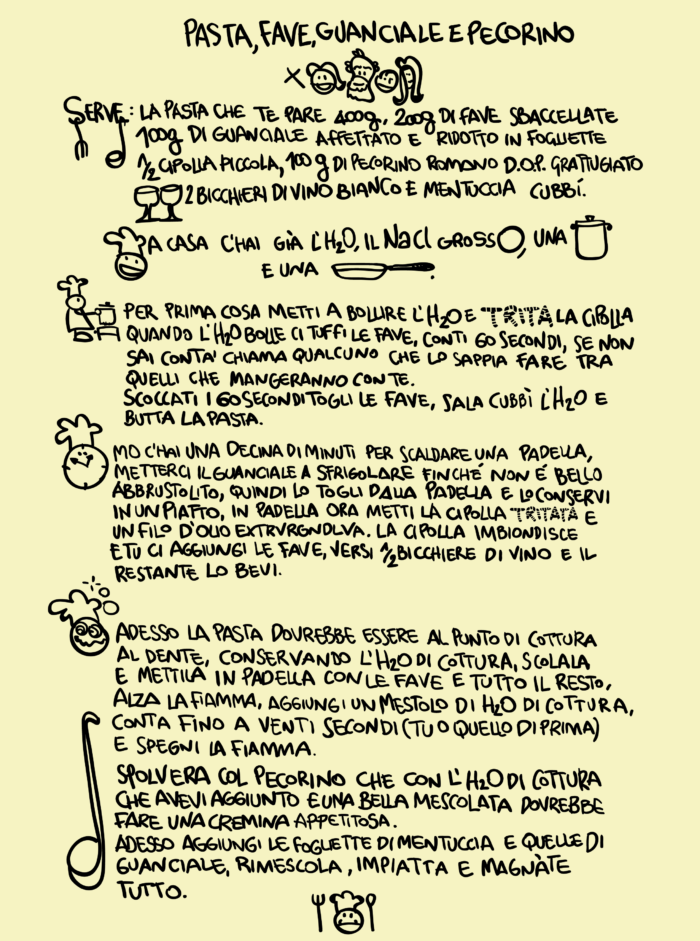 PASTA, FAVE, GUANCIALE E PECORINO
X
SERVE: LA PASTA CHE TE PARE 400g, 200g DI FAVE SBACCELLATE
100g DI GUANCIALE AFFETTATO E RIDOTTO IN FOGLIETTE
1/2 CIPOLLA PICCOLA, 100 g DI PECORINO ROMANO D.O.P. GRATTUGIATO
2 BICCHIERI DI VINO BIANCO E MENTUCCIA CUBBÍ.
A CASA C'HAI GIÀ L'H2O, IL NaCl GROSSO, UNA
E UNA
PER PRIMA COSA METTI A BOLLIRE L'H2O E TRITA LA CIPOLLA
QUANDO L'H2O BOLLE CI TUFFI LE FAVE, CONTI 60 SECONDI, SE NON
SAI CONTA' CHIAMA QUALCUNO CHE LO SAPPIA FARE TRA
QUELLI CHE MANGERANNO CON TE.
SCOCCATI I 60 SECONDI TOGLI LE FAVE, SALA CUBBÌ L'H2O E
BUTTA LA PASTA.
MO C'HAI UNA DECINA DI MINUTI PER SCALDARE UNA PADELLA,
METTERCI IL GUANCIALE A SFRIGOLARE FINCHÉ NON É BELLO
ABBRUSTOLITO, QUINDI LO TOGLI DALLA PADELLA E LO CONSERVI
IN UN PIATTO, IN PADELLA ORA METTI LA CIPOLLA TRITATA E
UN FILO D'OLIO EXTRVRGNDLVA. LA CIPOLLA IMBIONDISCE
E TU CI AGGIUNGI LE FAVE, VERSI 1/2 BICCHIERE DI VINO E IL
RESTANTE LO BEVI.
ADESSO LA PASTA DOVREBBE ESSERE AL PUNTO DI COTTURA
AL DENTE, CONSERVANDO L'H2O DI COTTURA, SCOLALA
E METTILA IN PADELLA CON LE FAVE E TUTTO IL RESTO,
ALZA LA FIAMMA, AGGIUNGI UN MESTOLO DI H2O DI COTTURA,
CONTA FINO A VENTI SECONDI (TU O QUELLO DI PRIMA)
E SPEGNI LA FIAMMA.
SPOLVERA COL PECORINO CHE CON L'H2O DI COTTURA
CHE AVEVI AGGIUNTO E UNA BELLA MESCOLATA DOVREBBE
FARE UNA CREMINA APPETITOSA.
ADESSO AGGIUNGI LE FOGLIETTE DI MENTUCCIA E QUELLE DI
GUANCIALE, RIMESCOLA, IMPIATTA E MAGNÀTE
TUTTO.